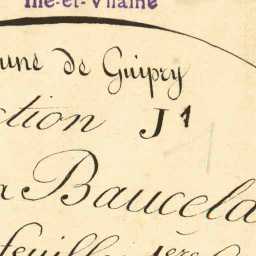 Ille-et-Vilaine
une de Guipry
ction J 1
a Baucela
feuille 1ère